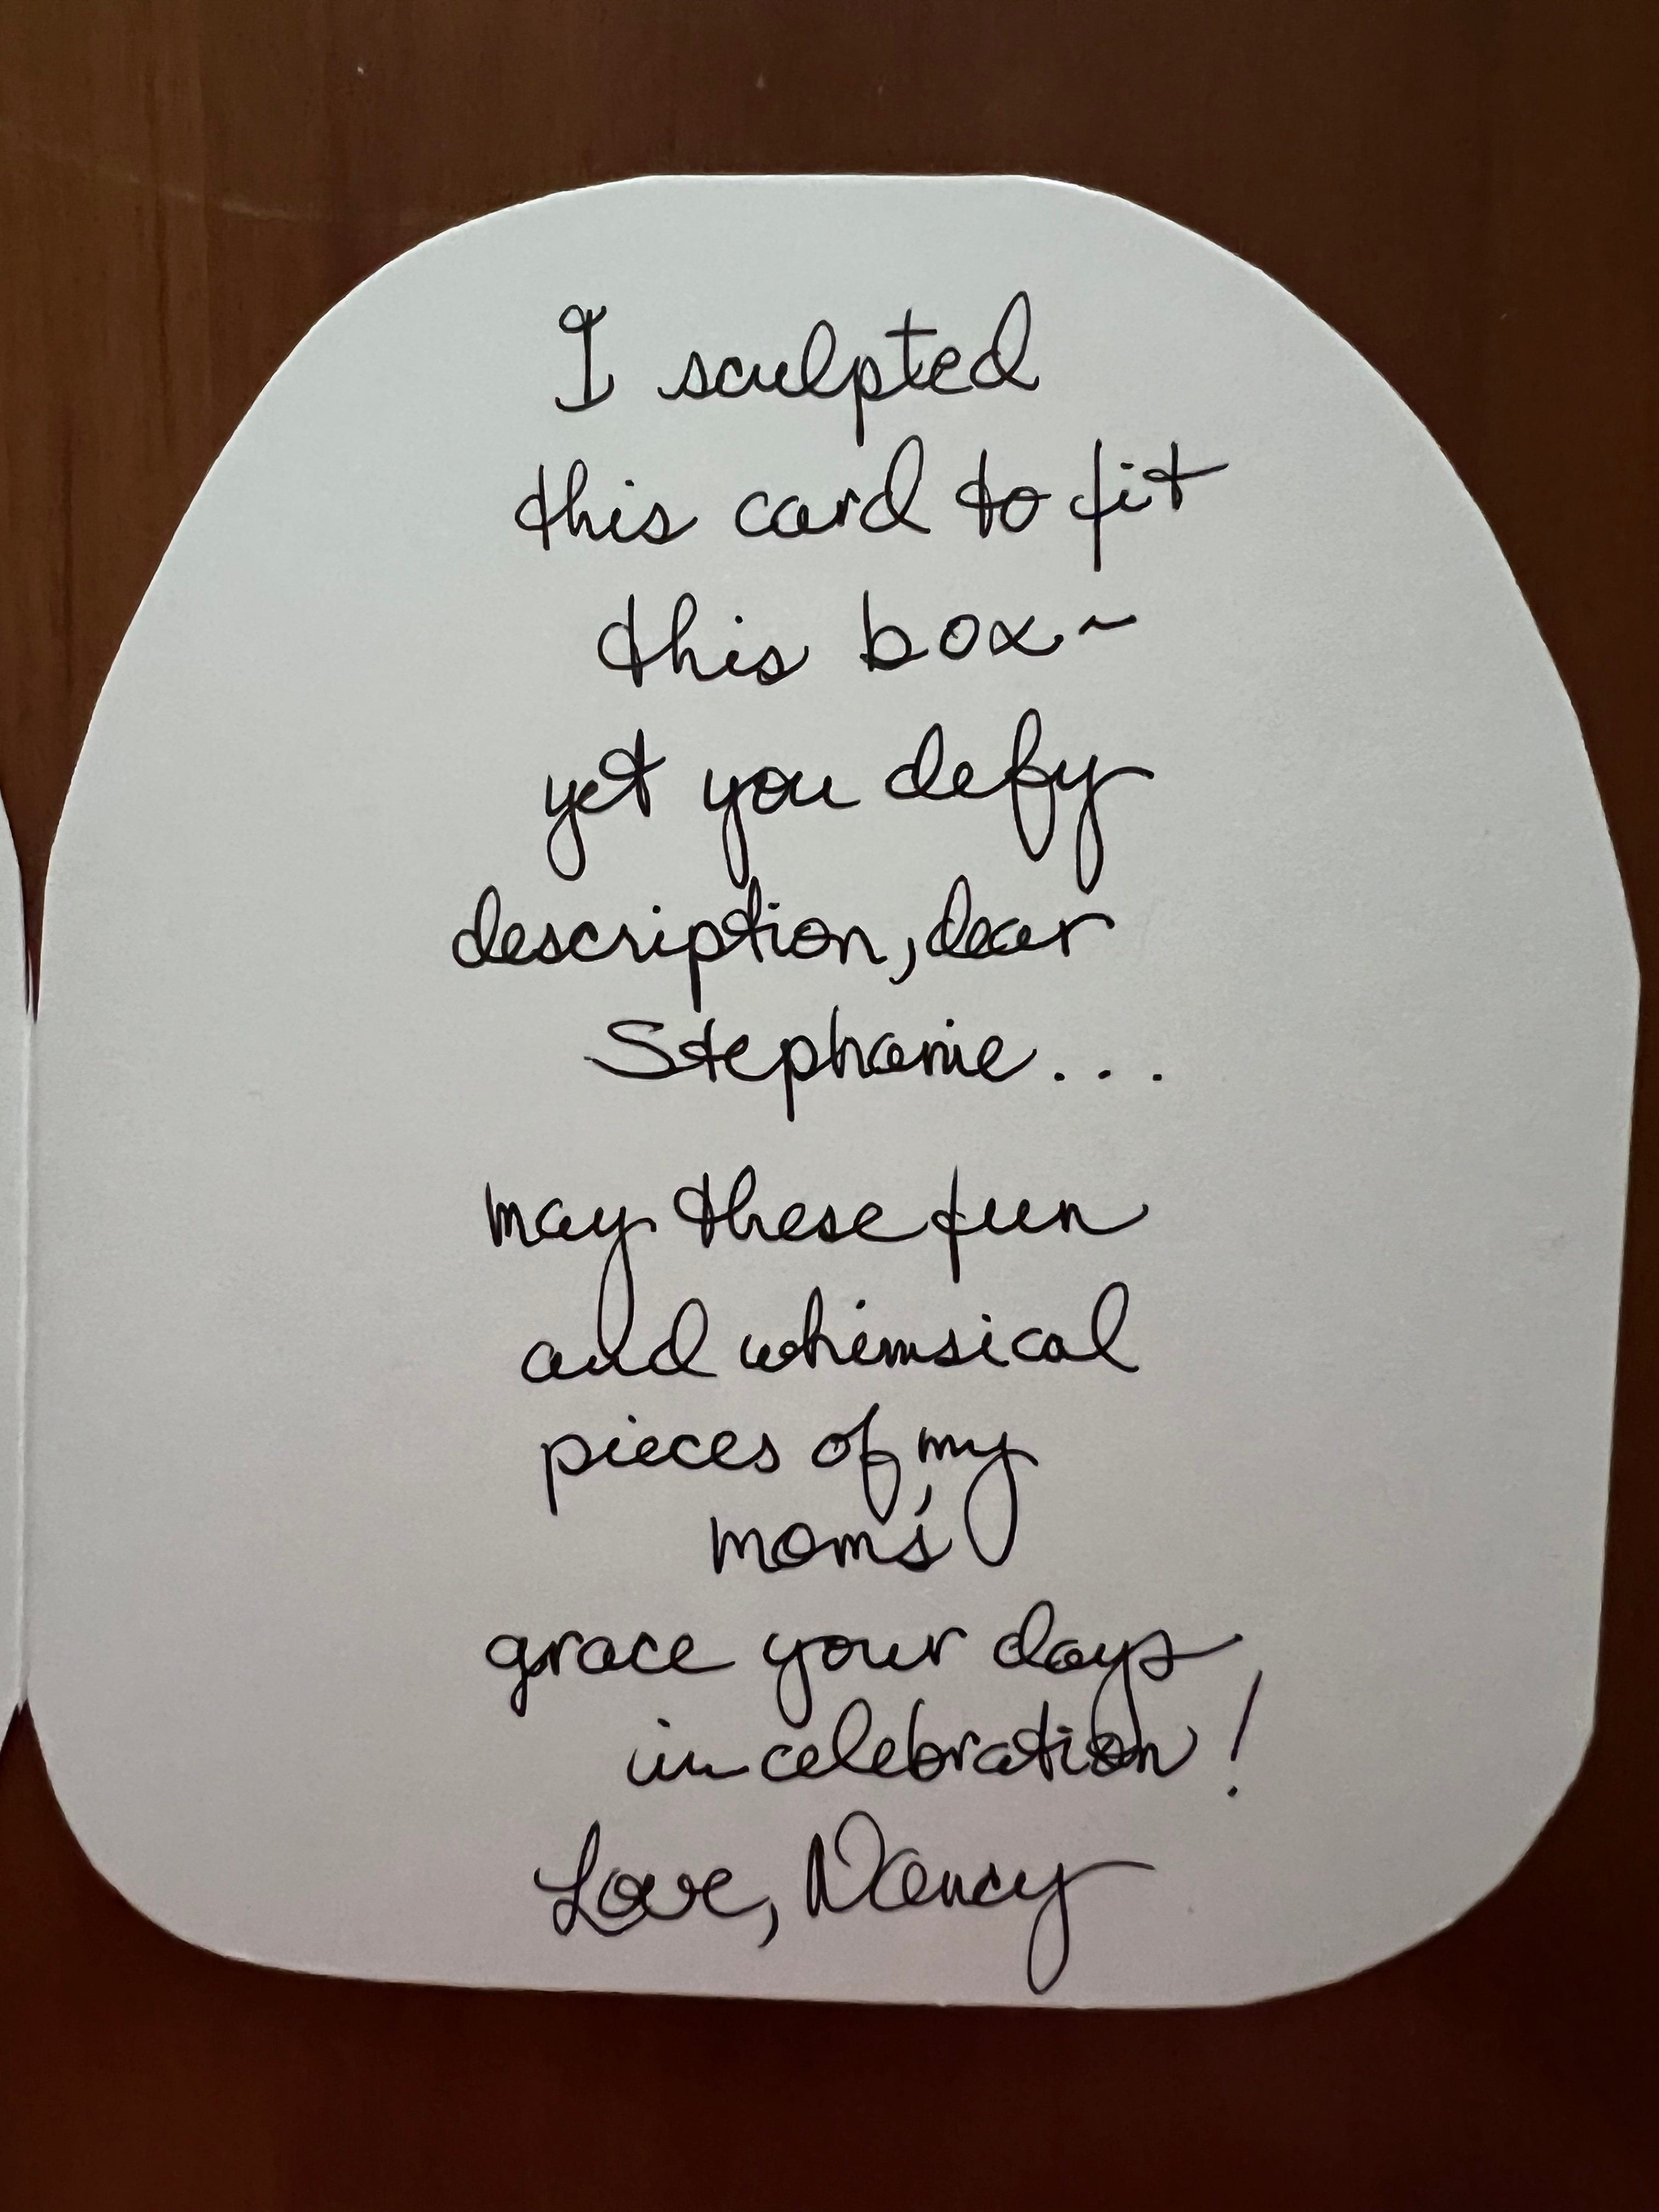 I sculpted
this card to fit
this box~
yet you defy
description, dear
Stephanie...
may these fun
and whimsical
pieces of my
mom's
grace your days
in celebration!
Love, Nancy